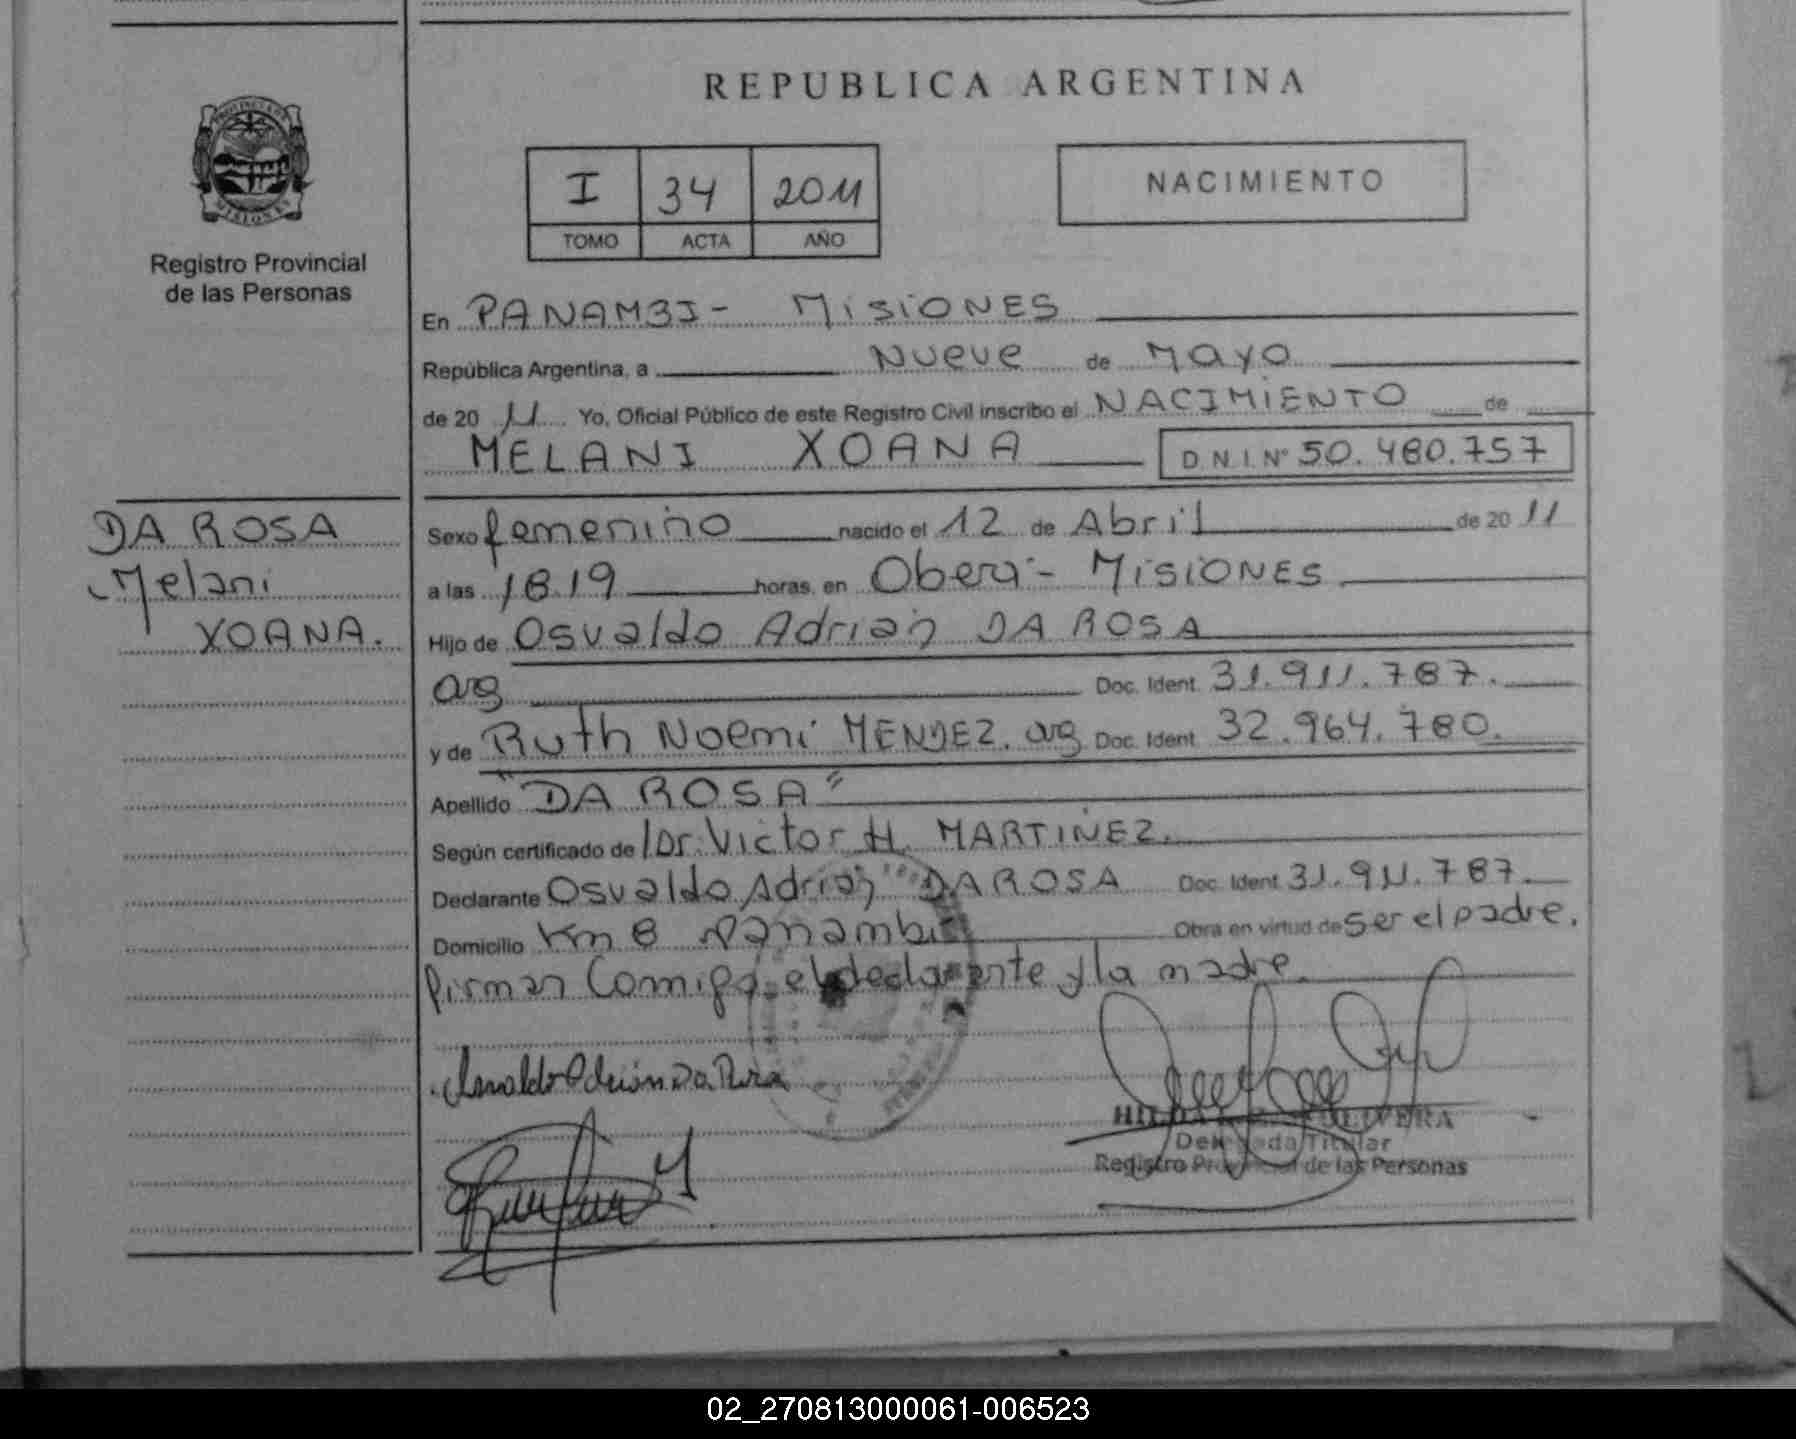 REPUBLICA ARGENTINA
PROVINCIA DE
MISIONES
Registro Provincial
de las Personas
I 34 2011
TOMO ACTA AÑO
NACIMIENTO
En PANAMBI - MISIONES
República Argentina, a Nueve de Mayo
de 20 11 Yo, Oficial Público de este Registro Civil inscribo el NACIMIENTO de
MELANI XOANA D.N.I. Nº 50.480.757
DA ROSA
Melani
XOANA.
Sexo femenino nacido el 12 de Abril de 20 11
a las 18.19 horas, en Obera - MISIONES
Hijo de Osvaldo Adrian DA ROSA
arg Doc. Ident. 31.911.787.
y de Ruth Noemi MENDEZ. arg Doc. Ident. 32.964.780.
Apellido "DA ROSA"
Según certificado de Dr. Victor H. MARTINEZ.
Declarante Osvaldo Adrian DA ROSA Doc. Ident. 31.911.787.
Domicilio Km 8 Panambi Obra en virtud de ser el padre.
firman Comigo el declarante y la madre.
Osvaldo Adrian Da Rosa
Delegada Titular
Registro Provincial de las Personas
02_270813000061-006523